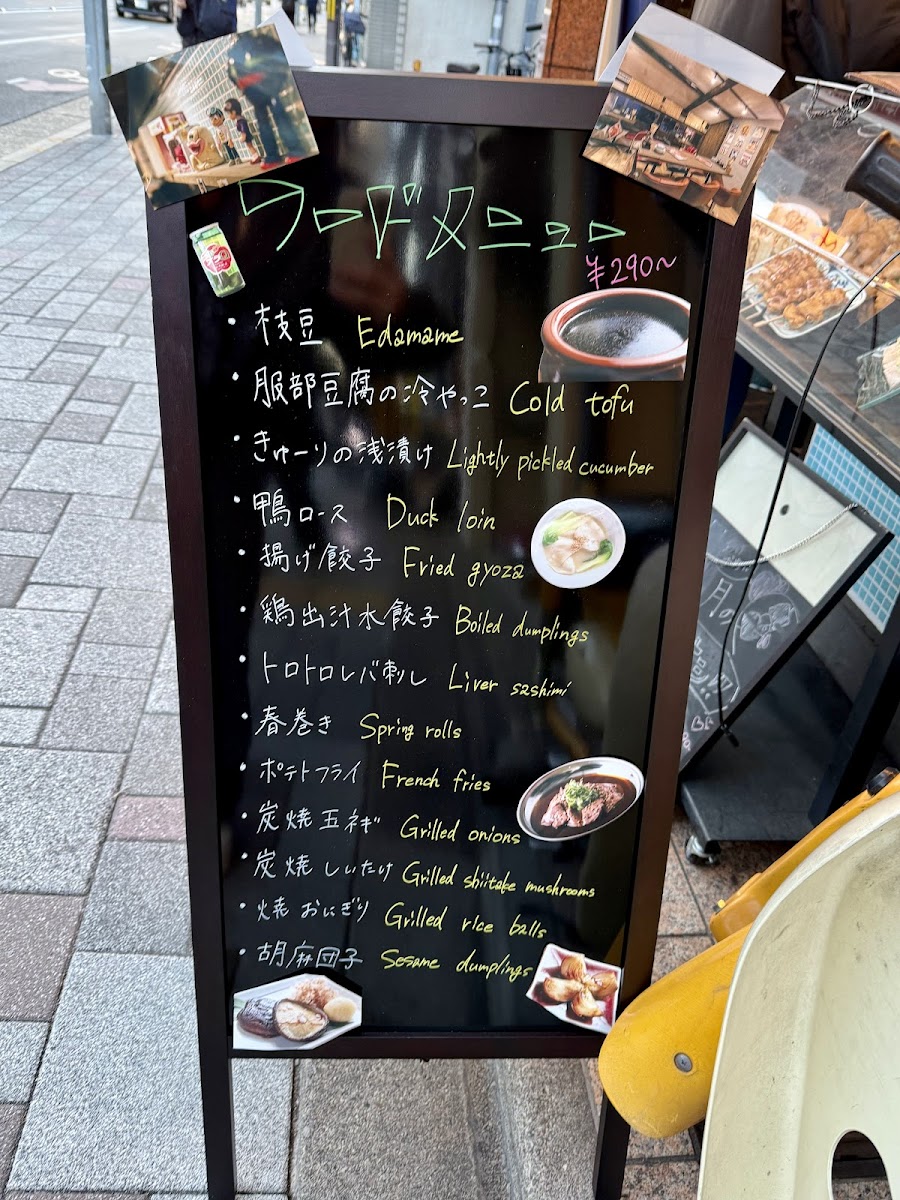 フードメニュー
¥290~
・枝豆 Edamame
・服部豆腐の冷やっこ Cold tofu
・きゅーりの浅漬け Lightly pickled cucumber
・鴨ロース Duck loin
・揚げ餃子 Fried gyoza
・鶏出汁水餃子 Boiled dumplings
・トロトロレバ刺し Liver sashimi
・春巻き Spring rolls
・ポテトフライ French fries
・炭焼玉ネギ Grilled onions
・炭焼しいたけ Grilled shiitake mushrooms
・焼おにぎり Grilled rice balls
・胡麻団子 Sesame dumplings
月の